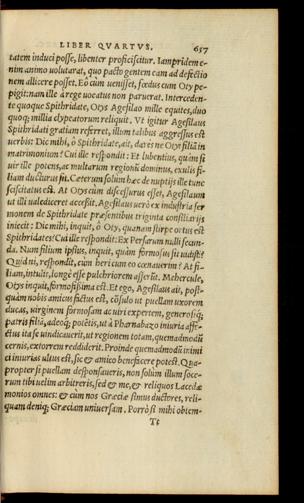 LIBER QVARTVS. 657
tatem induci posse, libenter proficiscitur. Iampridem e-
nim animo uolutarat, quo pacto gentem eam ad defectio
nem allicere posset. Eò cùm uenisset, fœdus cum Oty pe-
pigit: nam ille à rege uocatus non paruerat. Interceden-
te quoque Spithridate, Otys Agesilao mille equites, duo
quoq; millia clypeatorum reliquit. Vt igitur Agesilaus
Spithridati gratiam referret, illum talibus aggressus est
uerbis: Dic mihi, ô Spithridate, ait, dares ne Otyi filiã in
matrimonium? Cui ille respondit: Et lubentius, quàm si
uir ille potens, ac multarum regionũ dominus, exulis fi-
liam ducturus sit. Cæterum solùm hæc de nuptijs ille tunc
sciscitatus est. At Otys cùm discessurus esset, Agesilaum
ut illi ualediceret accessit. Agesilaus uerò ex industria ser
monem de Spithridate præsentibus triginta consiliarijs
iniecit: Dic mihi, inquit, ô Oty, quanam stirpe ortus est
Spithridates? Cui ille respondit: Ex Persarum nulli secun-
da. Num filium ipsius, inquit, quàm formosus sit uidisti?
Quid ni, respondit, cùm heri cum eo cœnauerim? At fi-
liam, intulit, longè esse pulchriorem asserũt. Mehercule,
Otys inquit, formosissima est. Et ego, Agesilaus ait, post-
quàm nobis amicus factus est, cõsulo ut puellam uxorem
ducas, uirginem formosam ac uiri expertem, generosiq;
patris filiã, adeoq; potẽtis, ut à Pharnabazo iniuria affe-
ctus ita se uindicauerit, ut regionem totam, quemadmodũ
cernis, extorrem reddiderit. Proinde quemadmodũ inimi
ci iniurias ultus est, sic & amico benefacere potest. Qua-
propter si puellam desponsaueris, non solùm illum soce-
rum tibi uelim arbitreris, sed & me, & reliquos Lacedæ
monios omnes: & cùm nos Græciæ simus ductores, reli-
quam deniq; Græciam uniuersam. Porrò si mihi obtem-
Tt